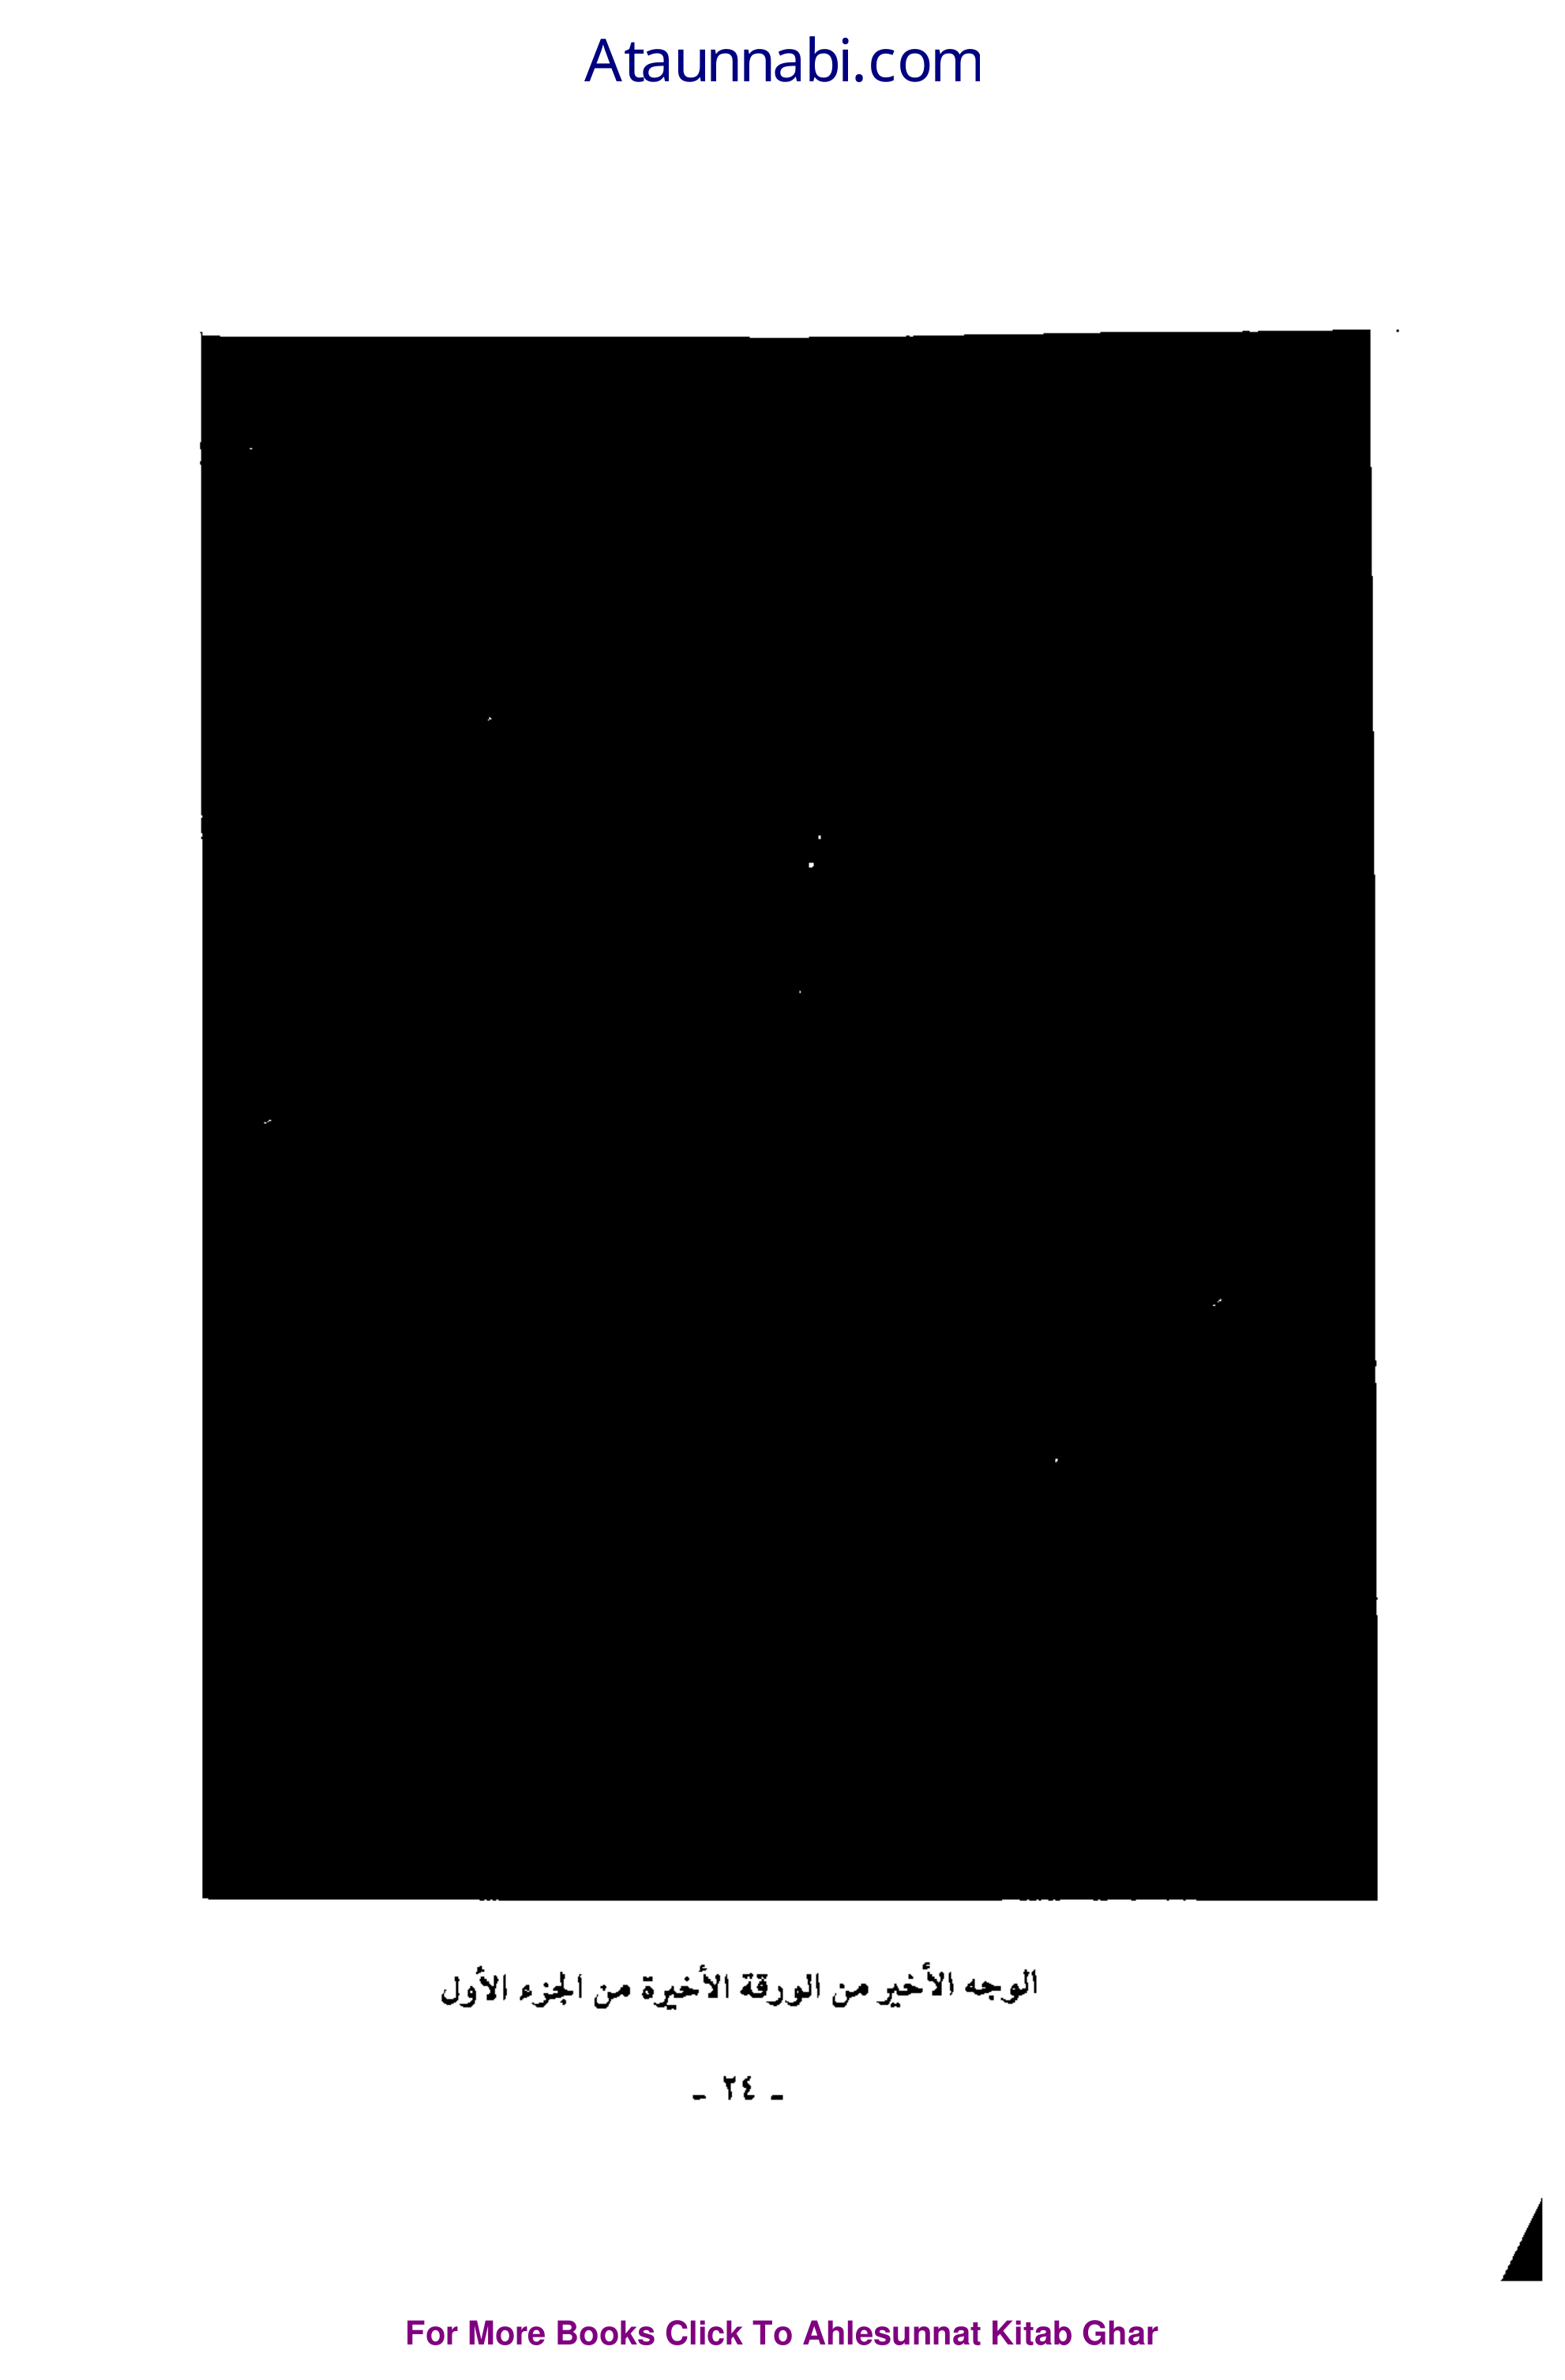 Ataunnabi.com
الوجه الأخير من الورقة الأخيرة من الجزء الأول
ـ ٢٤ ـ
For More Books Click To Ahlesunnat Kitab Ghar